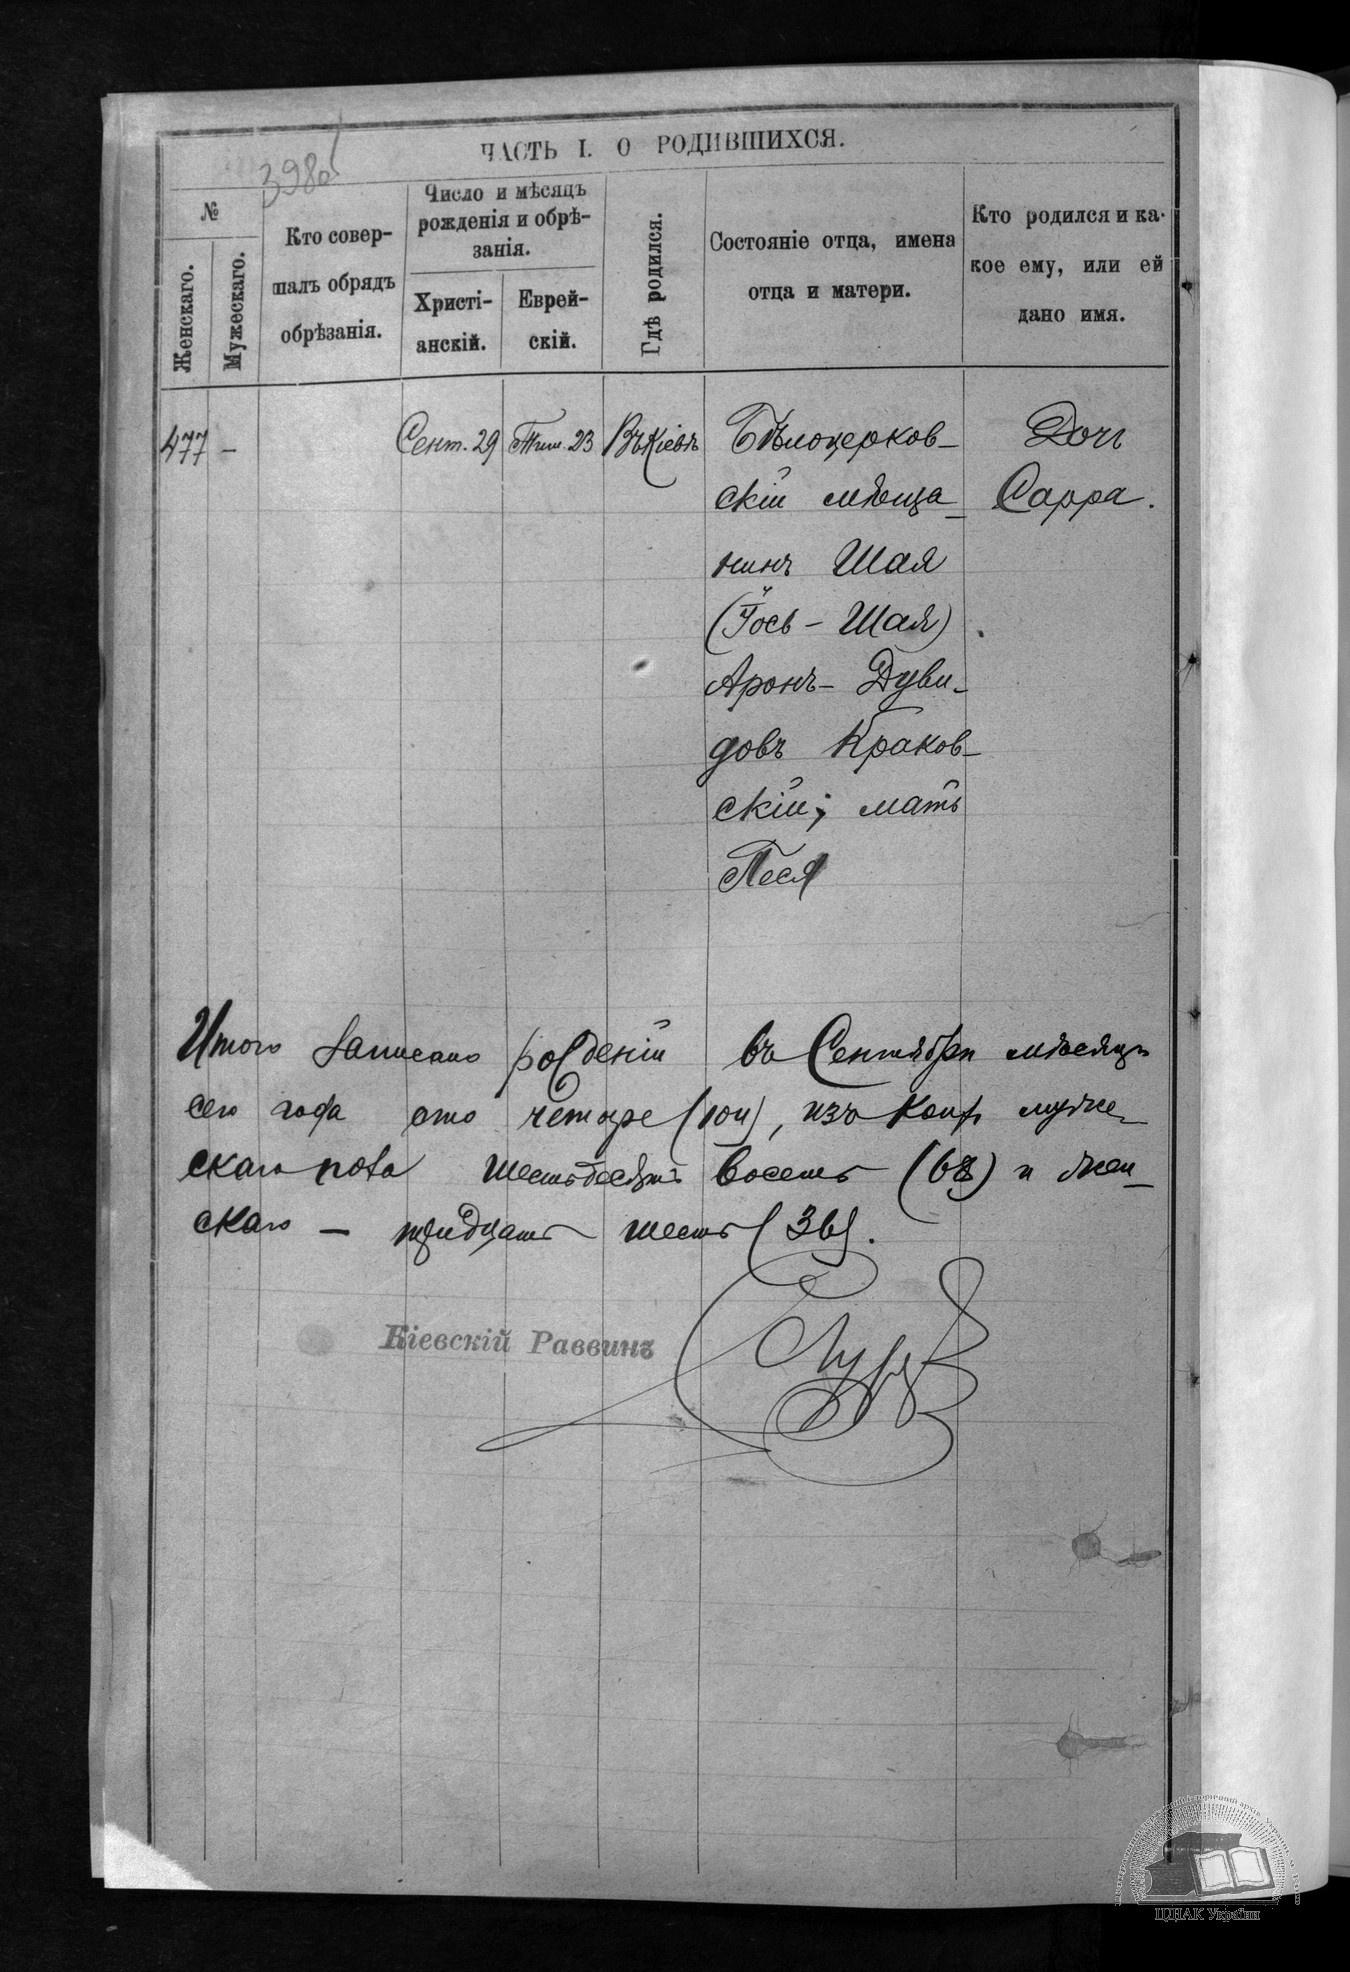 398
ЧАСТЬ I. О РОДИВШИХСЯ.
№
Женскаго.
Мужескаго.
Кто совер-
шалъ обрядъ
обрѣзанія.
Число и мѣсяцъ
рожденія и обрѣ-
занія.
Христі-
анскій.
Еврей-
скій.
Гдѣ родился.
Состояніе отца, имена
отца и матери.
Кто родился и ка-
кое ему, или ей
дано имя.
477 – Сент. 29 Тиш. 23 Въ Кіевѣ Бѣлоцерков- Дочь
скій мѣща- Сарра.
нинъ Шая
(Іось – Шая)
Аронъ – Дуви-
довъ Краков-
скій; мать
Песя
Итого записано рожденій въ Сентябрѣ мѣсяцѣ
сего года сто четыре (104), изъ коихъ муже-
скаго пола шестьдесятъ восемь (68) и жен-
скаго – тридцать шесть (36).
Кіевскій Раввинъ
ЦДІАК України